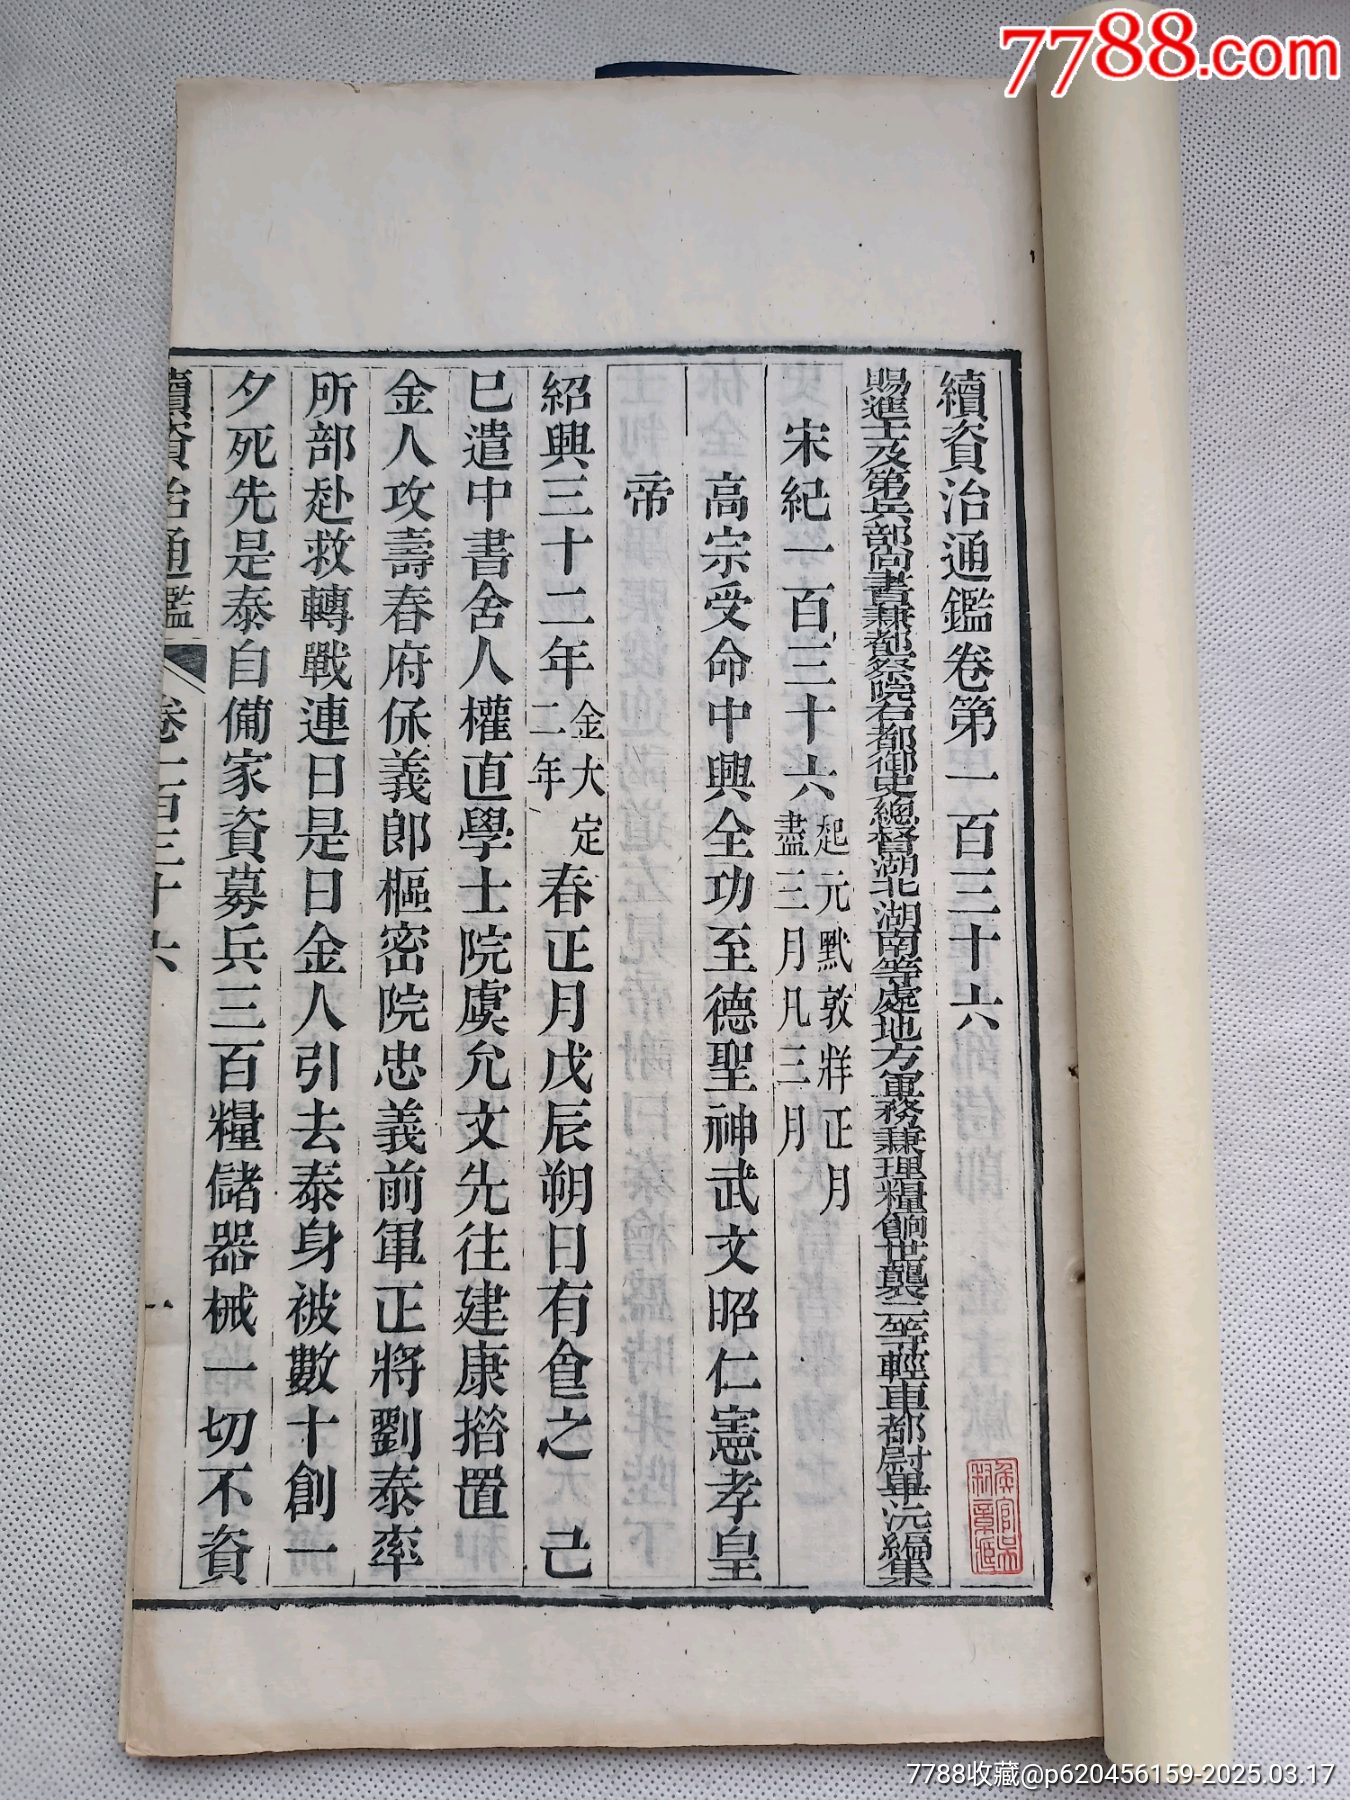 7788.com
續資治通鑑卷第一百三十六
賜進士及第兵部尚書兼都察院右都御史總督湖北湖南等處地方軍務兼理糧餉世襲二等輕車都尉畢沅編集
宋紀一百三十六起元黓敦牂正月盡三月凡三月
高宗受命中興全功至德聖神武文昭仁憲孝皇
帝
紹興三十二年金大定二年春正月戊辰朔日有食之 己
巳遣中書舍人權直學士院虞允文先往建康措置
金人攻壽春府保義郎樞密院忠義前軍正將劉泰率
所部赴救轉戰連日是日金人引去泰身被數十創一
夕死先是泰自備家資募兵三百糧儲器械一切不資
續資治通鑑 卷一百三十六 一
7788收藏@p620456159-2025.03.17